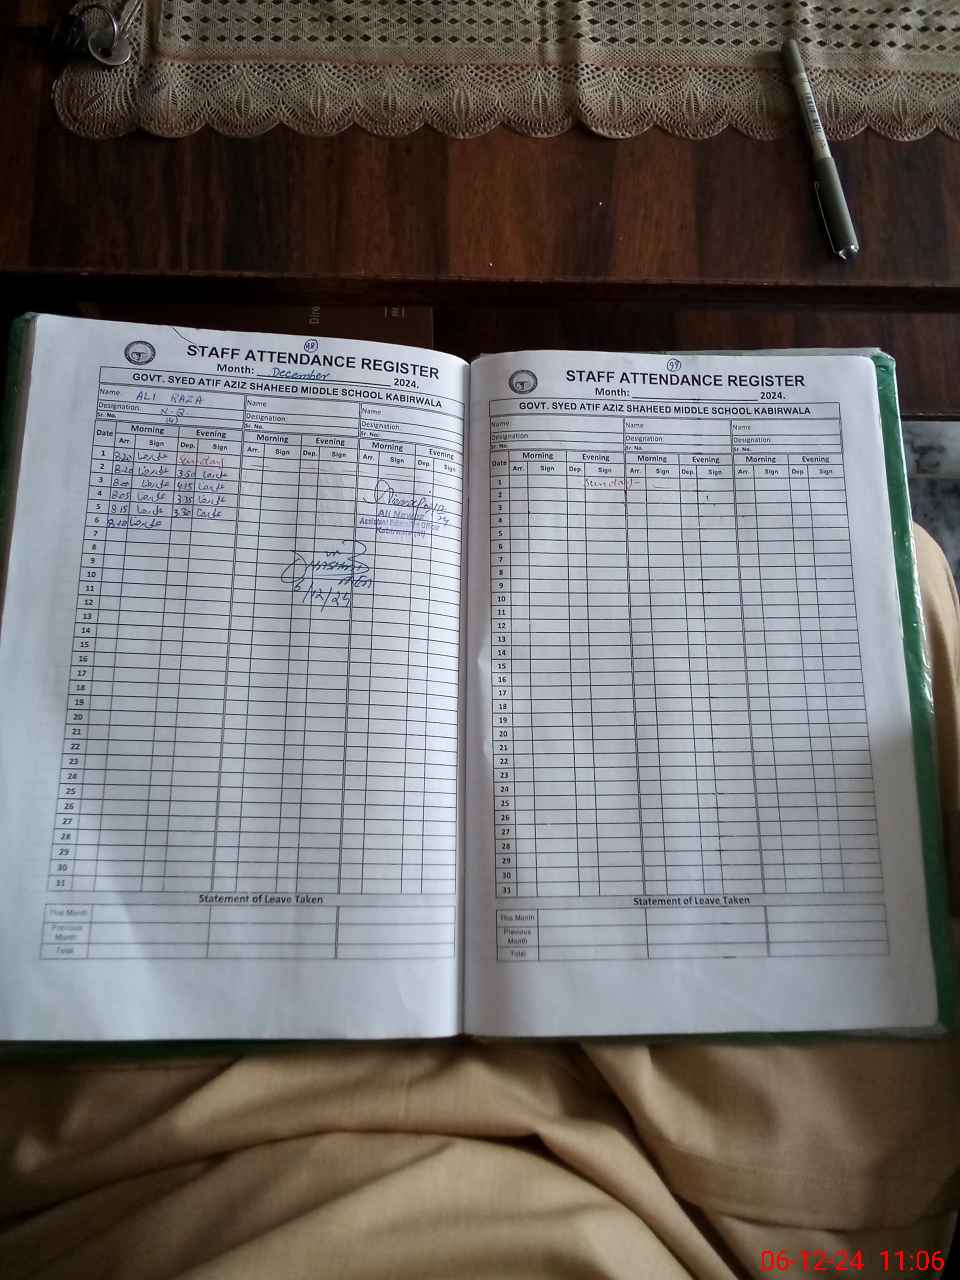 98
STAFF ATTENDANCE REGISTER
Month: December 2024.
GOVT. SYED ATIF AZIZ SHAHEED MIDDLE SCHOOL KABIRWALA
Name ALI RAZA Name Name
Designation: N-Q Designation: Designation:
Sr. No. Sr. No. Sr. No.
Date Morning Evening Morning Evening Morning Evening
Arr. Sign Dep. Sign Arr. Sign Dep. Sign Arr. Sign Dep. Sign
1 Sunday
2 8:20 3:50
3 8:00 4:15
4 8:05 3:35
5 8:15 3:30
6 8:20
7
8
9
10
11
12
13
14
15
16
17
18
19
20
21
22
23
24
25
26
27
28
29
30
31
Ali Nawaz
Assistant Education Officer
Kabirwala (M)
6/12/24
Statement of Leave Taken
This Month
Previous Month
Total
99
STAFF ATTENDANCE REGISTER
Month: 2024.
GOVT. SYED ATIF AZIZ SHAHEED MIDDLE SCHOOL KABIRWALA
Name Name Name
Designation: Designation: Designation:
Sr. No. Sr. No. Sr. No.
Date Morning Evening Morning Evening Morning Evening
Arr. Sign Dep. Sign Arr. Sign Dep. Sign Arr. Sign Dep. Sign
1 Sunday
2
3
4
5
6
7
8
9
10
11
12
13
14
15
16
17
18
19
20
21
22
23
24
25
26
27
28
29
30
31
Statement of Leave Taken
This Month
Previous Month
Total
06-12-24 11:06